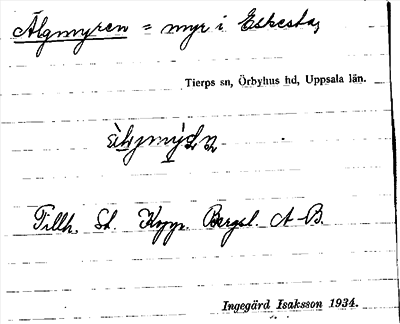 Älgmyren = myr i Eskesta,
Tierps sn, Örbyhus hd, Uppsala län.
Tillh. St. Kopp. Bergsl. A-B.
Ingegärd Isaksson 1934.